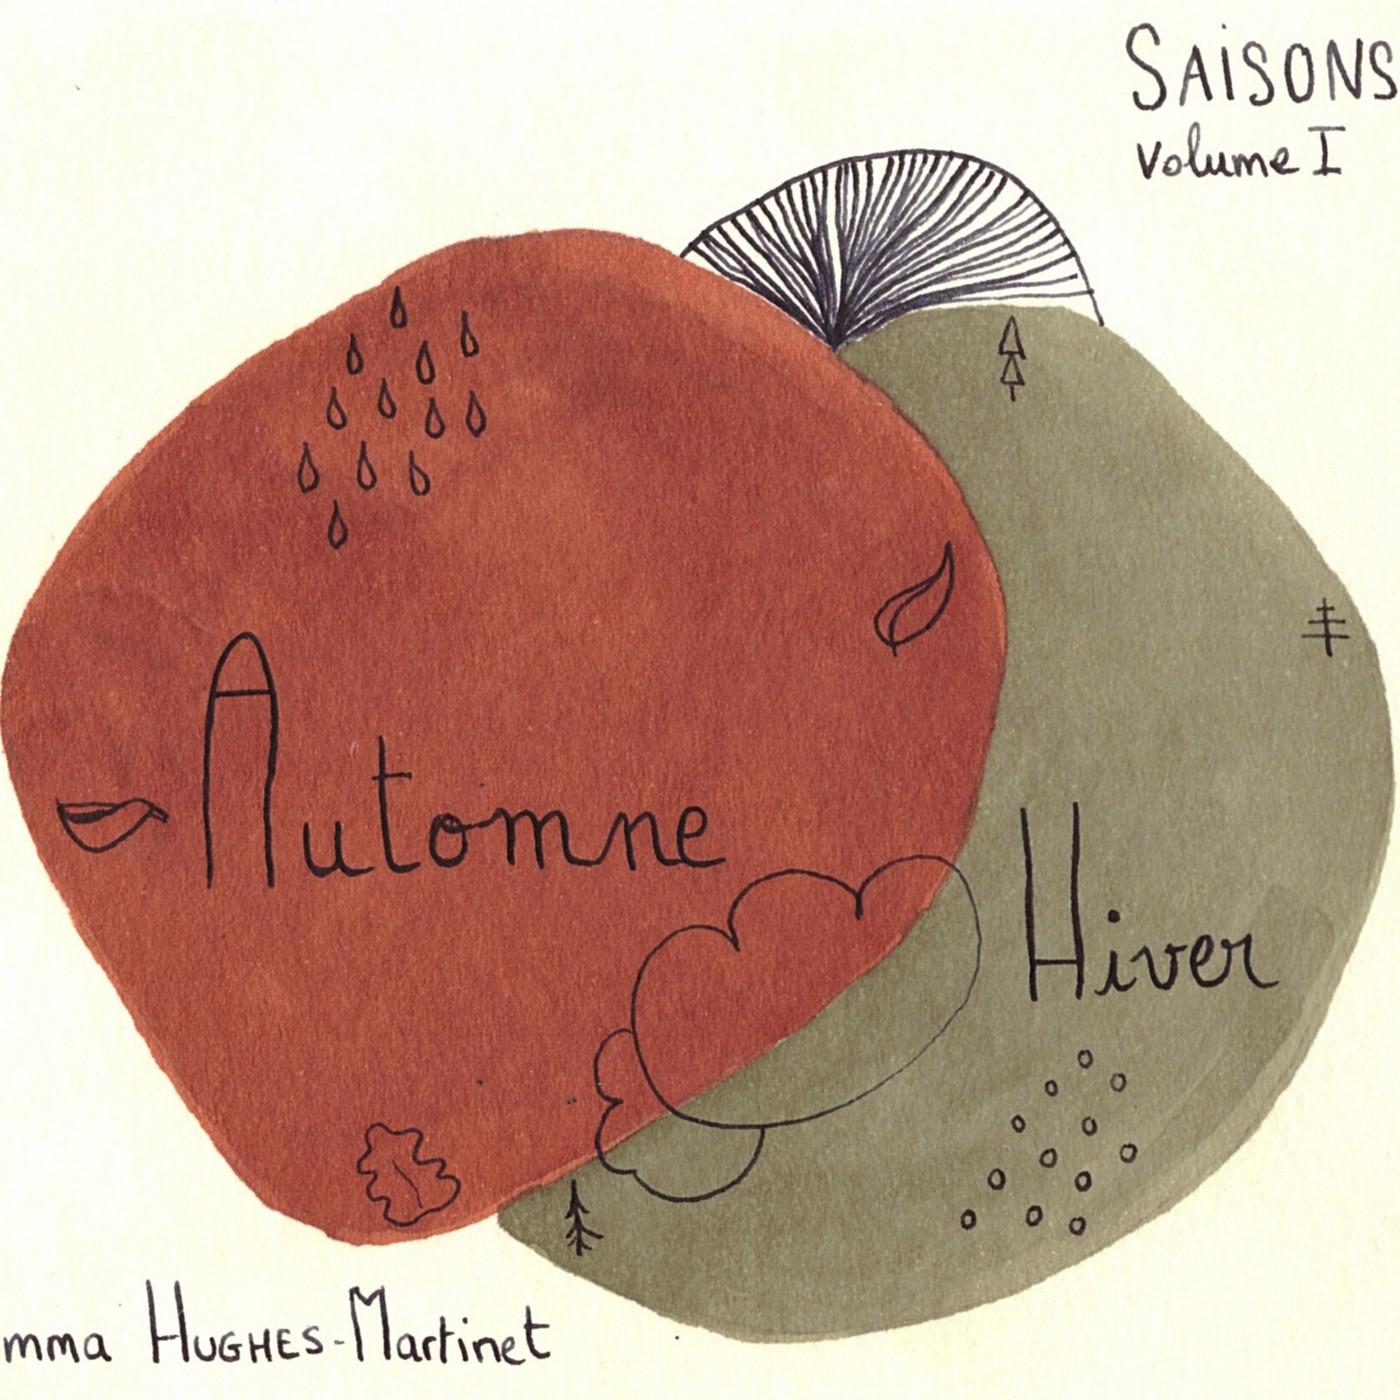 SAISONS
Volume I
Automne
Hiver
mma HUGHES-Martinet